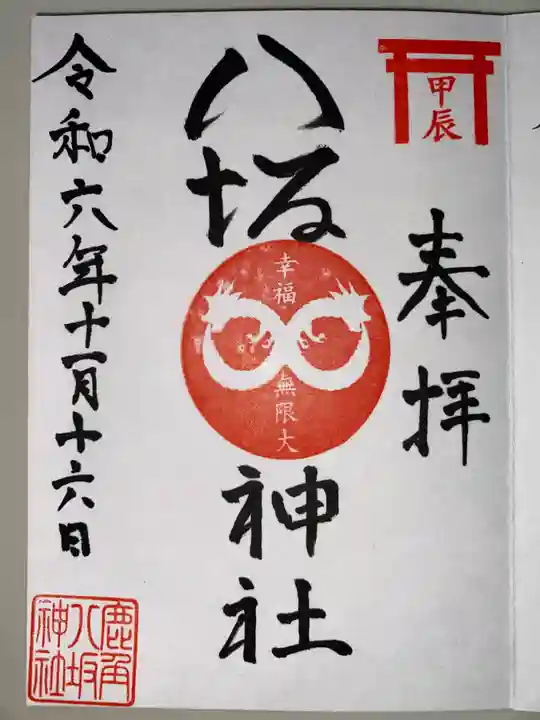 甲辰
奉拝
八坂
神社
幸福
無限大
令和六年十一月十六日
鹿角
八坂
神社